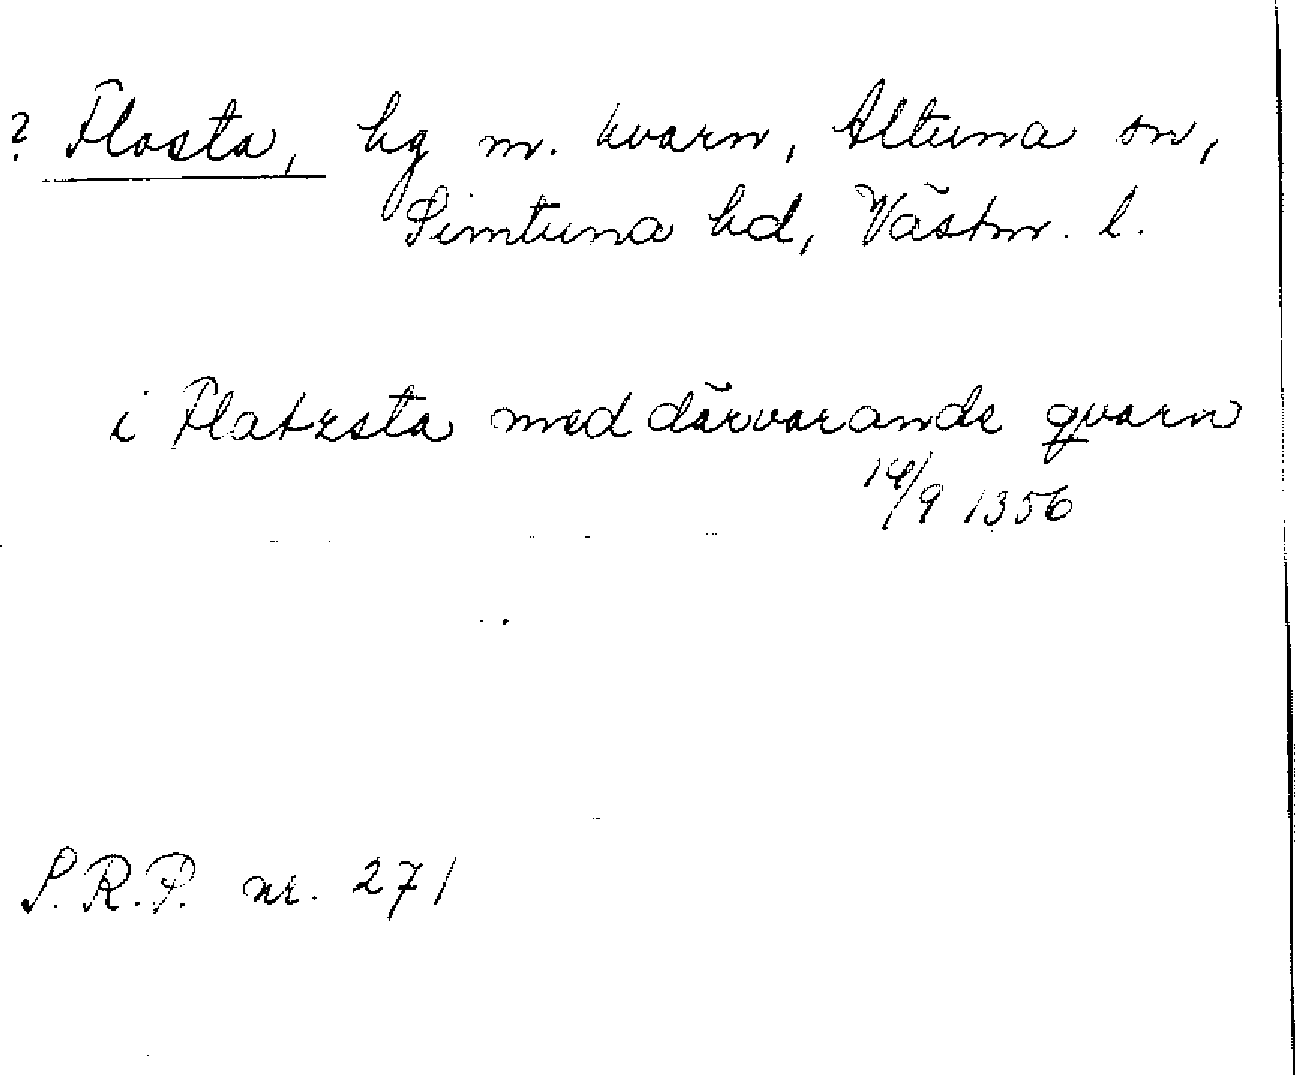 ? Flosta, hg m. kvarn, Altuna sn,
Simtuna hd, Västm. l.
i Flatzsta med därvarande qvarn
14/9 1356
S.R.P. nr. 271